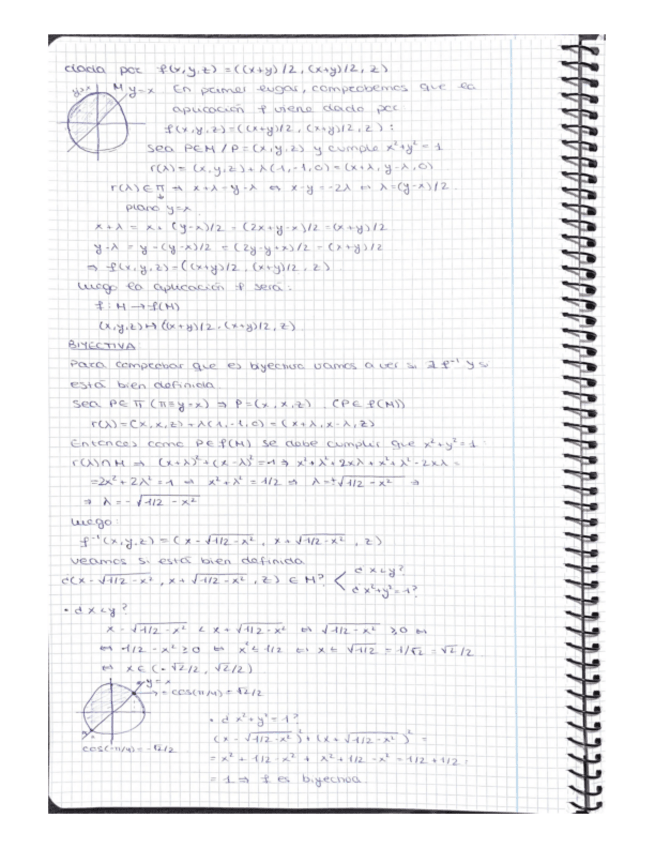 dada por f(x,y,z) = ((x+y)/2, (x+y)/2, z)
y>x M y=x En primer lugar, comprobemos que la
aplicación f viene dada por
f(x,y,z) = ((x+y)/2, (x+y)/2, z):
Sea P∈M / P=(x,y,z) y cumple x²+y²=1
r(λ) = (x,y,z) + λ(1,-1,0) = (x+λ, y-λ, 0)
r(λ)∈π ⇒ x+λ = y-λ ⇔ x-y = -2λ ⇔ λ=(y-x)/2.
plano y=x
x+λ = x+(y-x)/2 = (2x+y-x)/2 = (x+y)/2
y-λ = y-(y-x)/2 = (2y-y+x)/2 = (x+y)/2
⇒ f(x,y,z) = ((x+y)/2, (x+y)/2, z)
Luego la aplicación f será:
f: M → f(M)
(x,y,z) ↦ ((x+y)/2, (x+y)/2, z)
BIYECTIVA
Para comprobar que es biyectiva vamos a ver si ∃ f⁻¹ y si
está bien definida
Sea P∈π (π≡y=x) ⇒ P=(x,x,z) (P∈f(M))
r(λ) = (x,x,z) + λ(1,-1,0) = (x+λ, x-λ, z)
Entonces como P∈f(M) se debe cumplir que x²+y²=1:
r(λ)∩M ⇒ (x+λ)²+(x-λ)²=1 ⇒ x²+λ²+2xλ+x²+λ²-2xλ=
=2x²+2λ²=1 ⇒ x²+λ²=1/2 ⇒ λ=±√1/2-x² ⇒
⇒ λ=-√1/2-x²
Luego:
f⁻¹(x,y,z) = (x-√1/2-x², x+√1/2-x², z)
Veamos si está bien definida
¿(x-√1/2-x², x+√1/2-x², z) ∈ M? < ¿x<y?
¿x²+y²=1?
• ¿x<y?
x-√1/2-x² < x+√1/2-x² ⇔ √1/2-x² ≥0 ⇔
⇔ 1/2-x²≥0 ⇔ x²≤1/2 ⇔ x≤√1/2 = 1/√2 = √2/2
⇔ x∈(-√2/2, √2/2)
y=x
→ = cos(π/4) = √2/2
• ¿x²+y²=1?
(x-√1/2-x²)²+(x+√1/2-x²)² =
cos(-π/4)=-√2/2
= x²+1/2-x²+x²+1/2-x² = 1/2+1/2
= 1 ⇒ f es biyectiva.